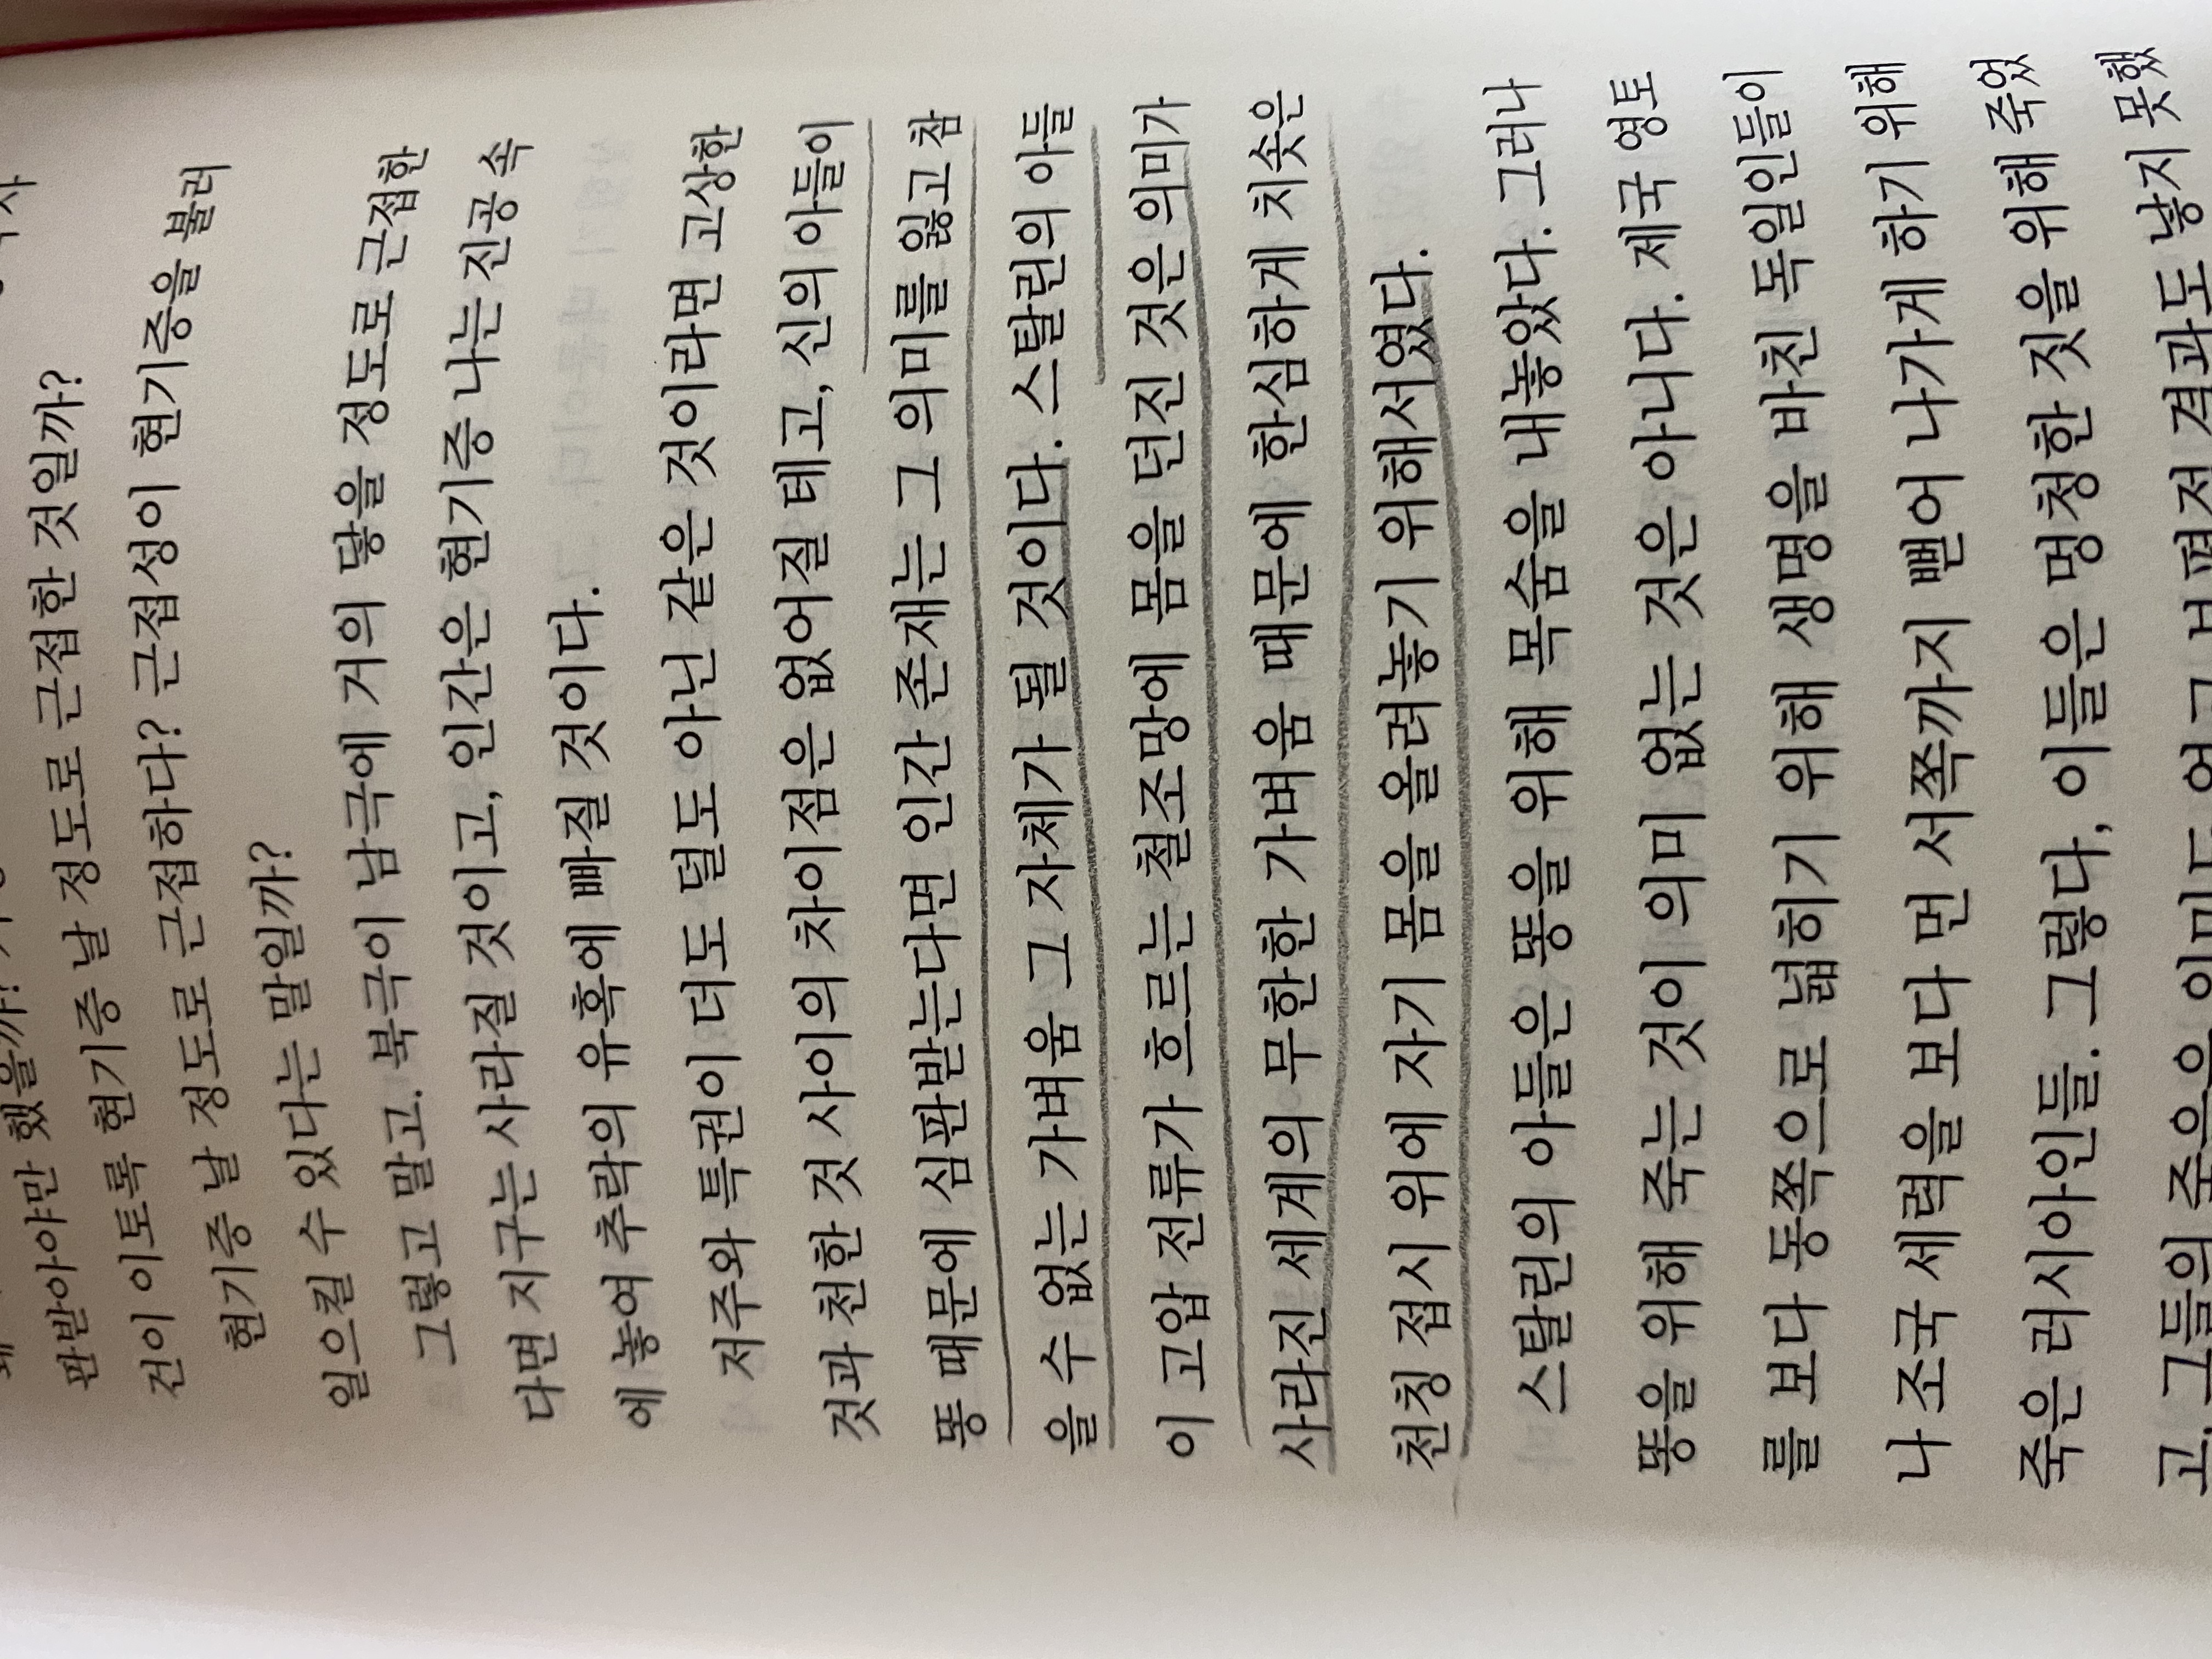 판받아야만 했을까?
건이 이토록 현기증 날 정도로 근접한 것일까?
현기증 날 정도로 근접하다? 근접성이 현기증을 불러
일으킬 수 있다는 말일까?
그렇고 말고. 북극이 남극에 거의 닿을 정도로 근접한
다면 지구는 사라질 것이고, 인간은 현기증 나는 진공 속
에 놓여 추락의 유혹에 빠질 것이다.
저주와 특권이 더도 덜도 아닌 같은 것이라면 고상한
것과 천한 것 사이의 차이점은 없어질 테고, 신의 아들이
똥 때문에 심판받는다면 인간 존재는 그 의미를 잃고 참
을 수 없는 가벼움 그 자체가 될 것이다. 스탈린의 아들
이 고압 전류가 흐르는 철조망에 몸을 던진 것은 의미가
사라진 세계의 무한한 가벼움 때문에 한심하게 치솟은
천칭 접시 위에 자기 몸을 올려놓기 위해서였다.
스탈린의 아들은 똥을 위해 목숨을 내놓았다. 그러나
똥을 위해 죽는 것이 의미 없는 것은 아니다. 제국 영토
를 보다 동쪽으로 넓히기 위해 생명을 바친 독일인들이
나 조국 세력을 보다 먼 서쪽까지 뻗어 나가게 하기 위해
죽은 러시아인들. 그렇다, 이들은 멍청한 짓을 위해 죽었
고, 그들의 죽음은 의미도 없고 보편적 결과도 낳지 못했